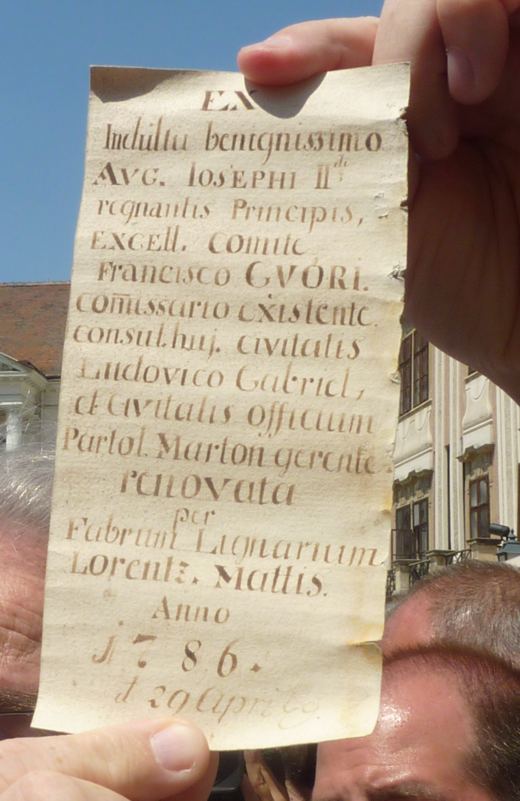 EX
Indultu benignissimo
AUG. IOSEPHI II^di
regnantis Principis,
EXCELL. Comite
Francisco GVÓRI.
Com̄issario existente.
consul.huj. civitatis
Ludovico Gabriel,
et civitatis officium
Partol. Marton gerente.
renovata
per
Fabrum Lignarium
Lorentz. Mattis.
Anno
1786.
d 29 Aprilis